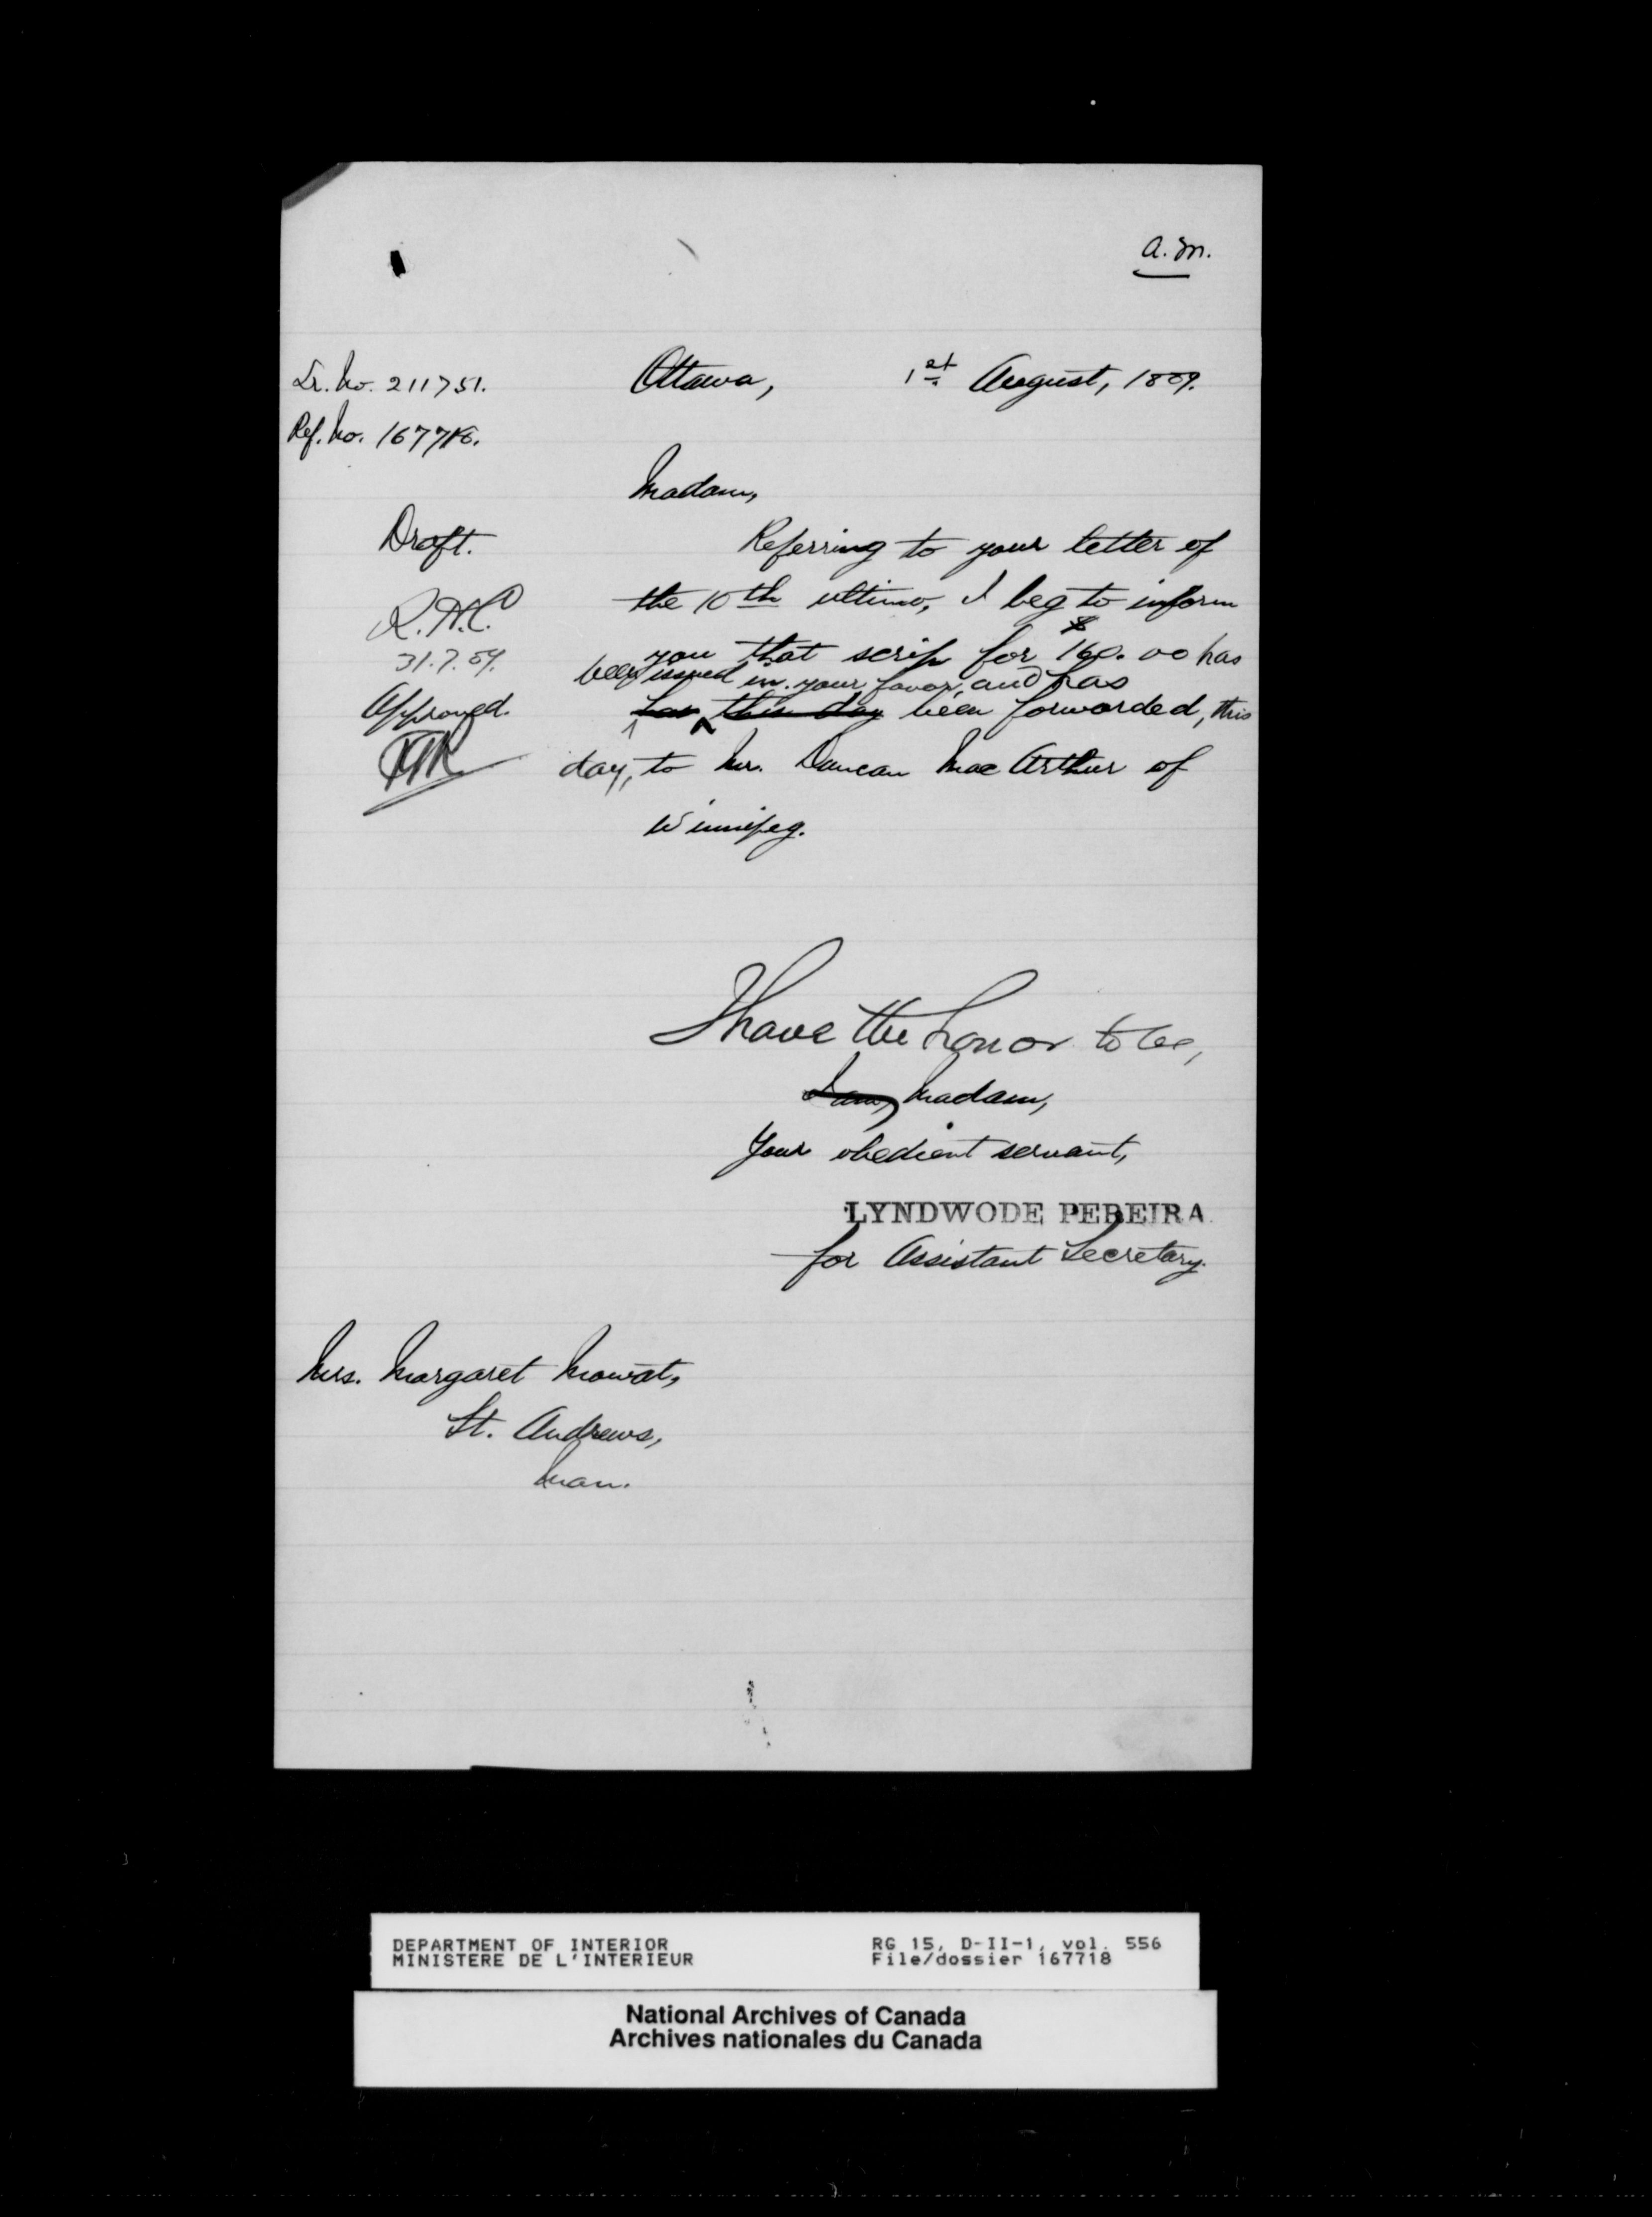 a.m.
Lr. No. 211751.
Ottawa, 1st August, 1889.
Ref. No. 167718.
Madam,
Draft.
Referring to your letter of
the 10th ultimo, I beg to inform
R.H.C.
you that scrip for $160.00 has
31.7.89.
been issued in your favor, and has
Approved.
has this day been forwarded, this
day, to Mr. Duncan MacArthur of
Winnipeg.
I have the honor to be,
I am, Madam,
Your obedient servant,
LYNDWODE PEREIRA
for Assistant Secretary.
Mrs. Margaret Mowat,
St. Andrews,
Man.
DEPARTMENT OF INTERIOR RG 15, D-II-1, vol. 556
MINISTERE DE L'INTERIEUR File/dossier 167718
National Archives of Canada
Archives nationales du Canada